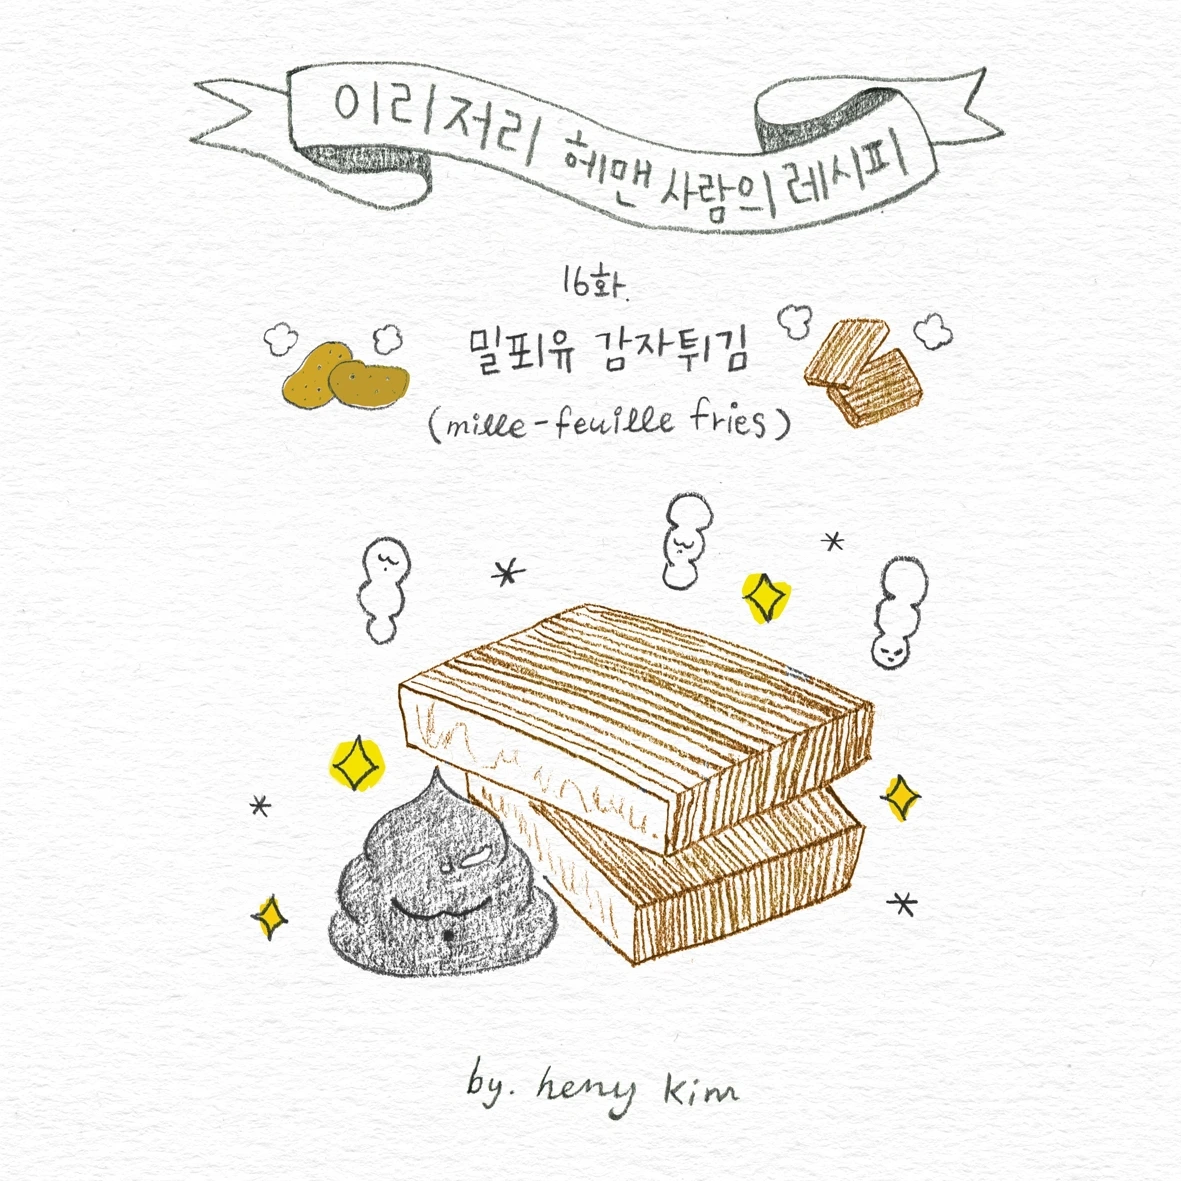 이리저리 헤맨 사람의 레시피
16화.
밀푀유 감자튀김
(mille-feuille fries)
by. heny kim